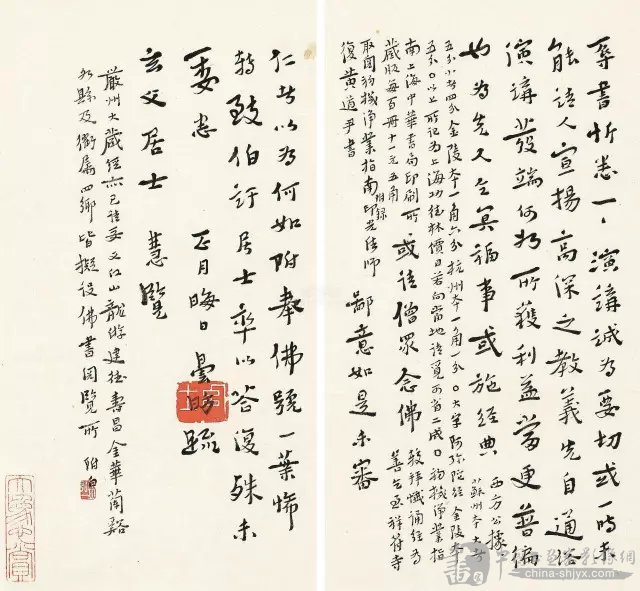 辱書忻悉一一演講誠為要切或一時未
能請人宣揚高深之教義先自通俗
演講發端何如所獲利益當更普徧
也為先人之冥福事或施經典 西方公據
蘇州本大者
五分小者四分金陵本一角六分杭州本一角一分〇大字阿弥陀經金陵本
五分〇以上所記為上海功德林價目若向當地請覓可省二成〇初機淨業指
南上海中華書局印刷所
藏版每百冊十一元五角 或請僧眾念佛 較拜懺誦經為
善 祥符寺
取閱初機淨業指南附錄印光法師
復黃適尹書 鄙意如是未審
仁者以為何如附奉佛號一葉希
轉致伯訏居士率以答復殊未
委悉 正月晦日曇昉疏
玄父居士 慧覽
嚴州大藏經亦已請妥又江山龍游建德壽昌金華蘭谿
各縣及衢屬四鄉皆擬設佛書閱覽所 附白
china-shjyx.com